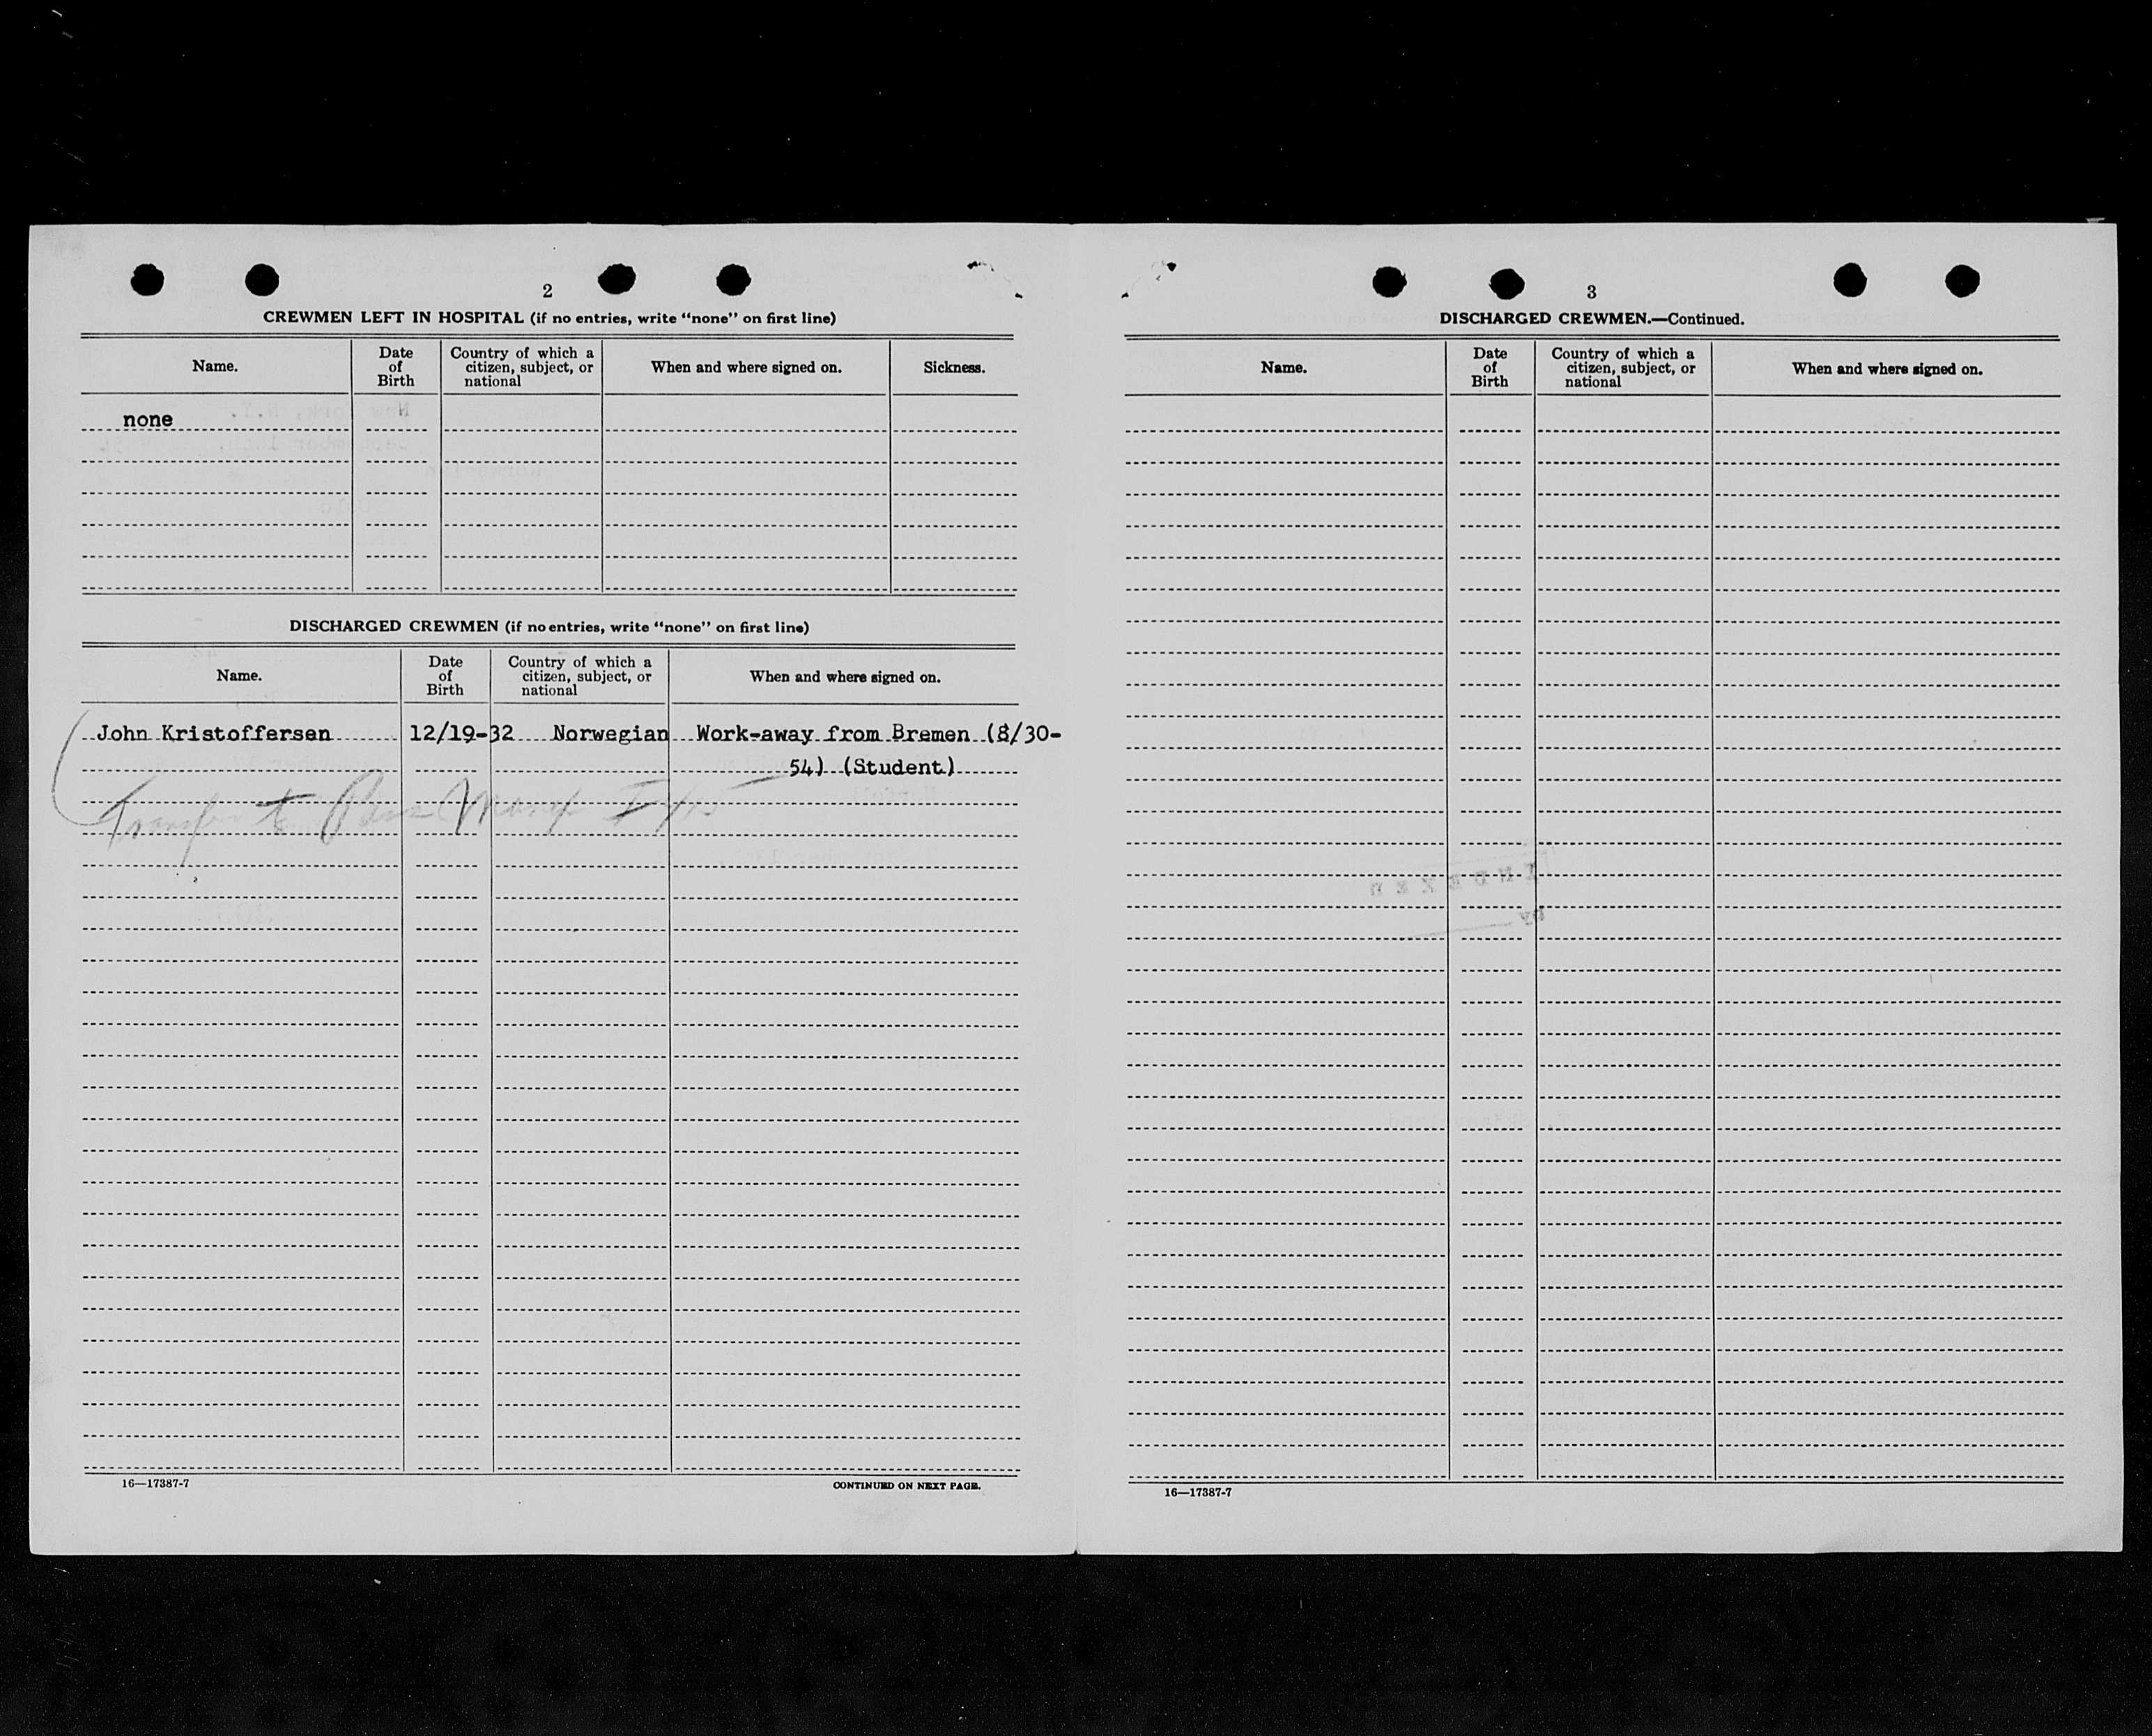 2
CREWMEN LEFT IN HOSPITAL (if no entries, write "none" on first line)
Name.
Date of Birth
Country of which a citizen, subject, or national
When and where signed on.
Sickness.
none
DISCHARGED CREWMEN (if no entries, write "none" on first line)
Name.
Date of Birth
Country of which a citizen, subject, or national
When and where signed on.
John Kristoffersen 12/19-32 Norwegian Work-away from Bremen (8/30-
54) (Student)
Transfer to
16—17387-7
CONTINUED ON NEXT PAGE.
3
DISCHARGED CREWMEN.—Continued.
Name.
Date of Birth
Country of which a citizen, subject, or national
When and where signed on.
INDEXED
BY
16—17387-7